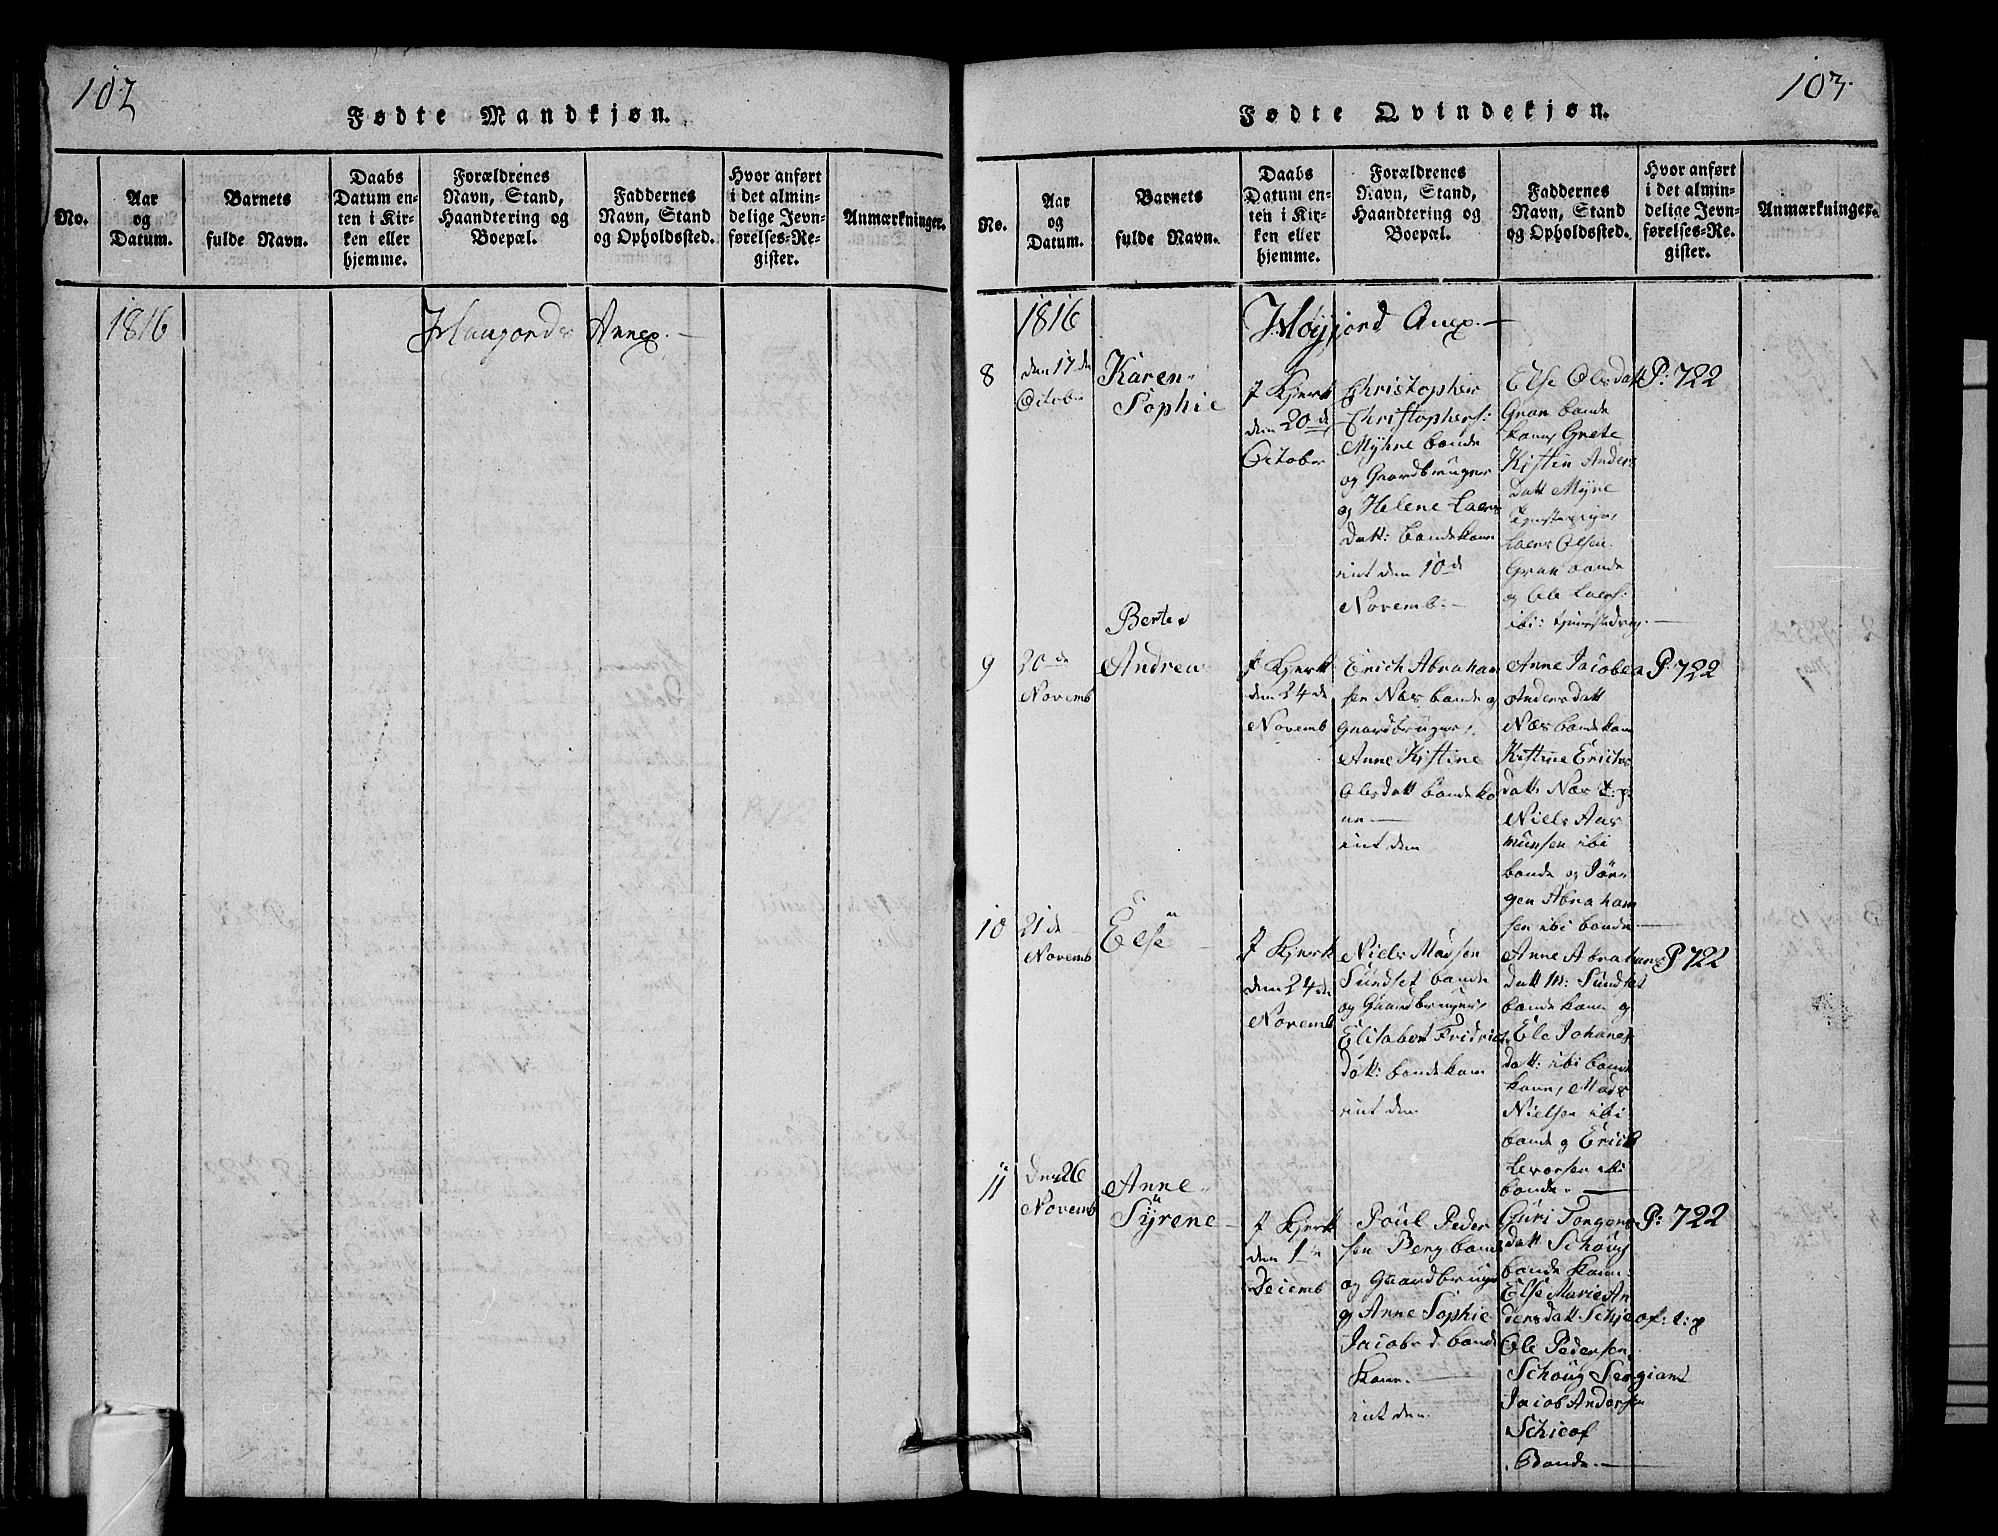 102
Fødte Mandkjøn.
No.
Aar
og
Datum.
Barnets
fulde Navn.
Daabs
Datum en-
ten i Kir-
ken eller
hjemme.
Forældrenes
Navn, Stand,
Haandtering og
Boepæl.
Faddernes
Navn, Stand
og Opholdssted.
Hvor anført
i det almin-
delige Jevn-
førelses-Re-
gister.
Anmærkninger.
1816
Annex.
103.
Fødte Qvindekjøn.
No.
Aar
og
Datum.
Barnets
fulde Navn.
Daabs
Datum en-
ten i Kir-
ken eller
hjemme.
Forældrenes
Navn, Stand,
Haandtering og
Boepæl.
Faddernes
Navn, Stand
og Opholdssted.
Hvor anført
i det almin-
delige Jevn-
førelses-Re-
gister.
Anmærkninger.
1816
Høyjord Anex.
8
den 17de
Octobr
Karen
Sophie
I Kjerk
den 20de
October
Christopher
Christophers:
Myhre bonde
og Gaardbruger
og Helene Laers
Datt: bondekone
int den 10de
Novemb:
Else Olsdatt
Gran bonde
kone Grete
Kistin Anders
Datt Myre
Laers Olsen
Gran bonde
og Ole Laers:
ibi:
P: 722
9
20de
Novemb
Berte
Andrea
I Kjerk
den 24de
Novemb
Erich Abraham
sen Næs bonde og
Gaardbruger,
Anne Kistine
Olesdatt bondeko
ne
int den
Anne Jacobea
Andersdatt
Næs bondekone
Kistine Erichs
datt Næs t: p:
Niels Aas
munsen ibi
bonde og Jør-
gen Abraham
sen ibi bonde
P: 722
10
21de
Novemb
Else
I Kjerk
den 24de
Novemb
Niels Madsen
Sundset bonde
og Gaardbruger,
Elisabet Fridrics
Datt: bondekone
int den
Anne Abrahams
datt m: Sundset
bondekone og
Ele Johanes
Datt: ibi bonde
kone, Mads
Nielsen ibi
bonde og Erich
Levorsen ibi
bonde.
P 722
11
Den 26
Novemb
Anne
Syrene
I Kjerk
den 1ste
Decemb
Poul Peder
sen Berg bonde
og Gaardbruger
og Anne Sophie
Jacobsd bonde
Kone.
int den
Guri Torgers
datt Schoug
bonde kone.
Else Marie An
dersdatt Schieof: t: p
Ole Pedersen
Schoug Sergiant
Jacob Andersen
Schieof
Bonde.
P: 722